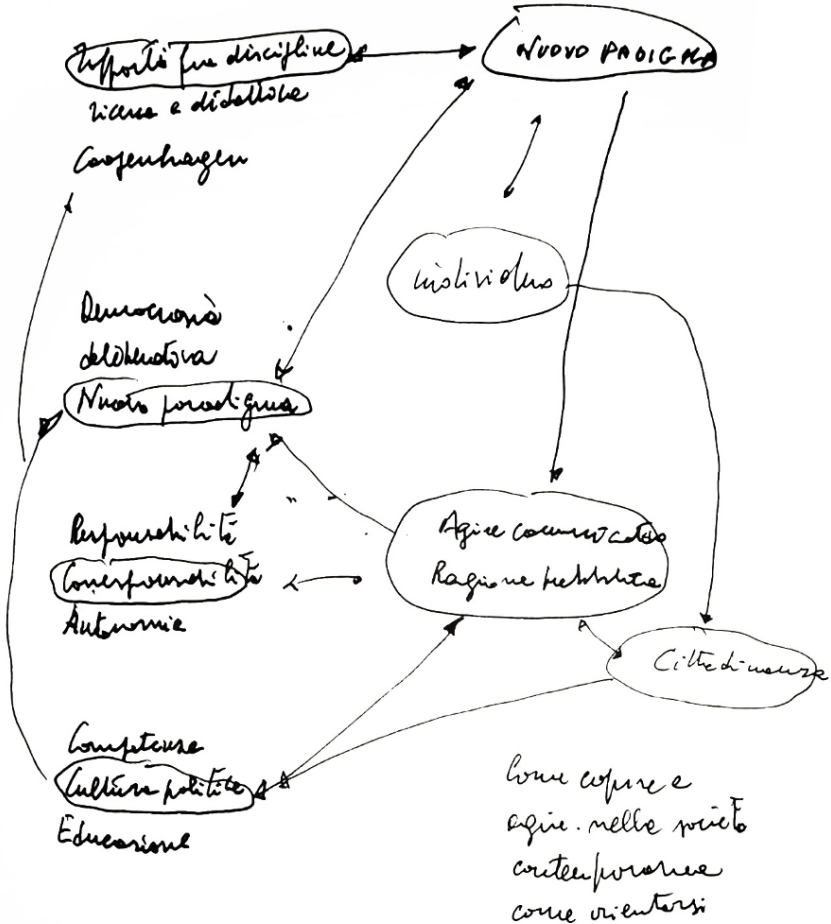 Rapporti fra discipline
ricerca e didattica
Coopenhagen
NUOVO PADIGMA
individuo
Democrazia
deliberativa
Nuovo paradigma
Responsabilità
Corresponsabilità
Autonomie
Agire comunicativo
Ragione pubblica
Cittadinanza
Competenze
Cultura politica
Educazione
Come capire e
agire nella società
contemporanea
come orientarsi